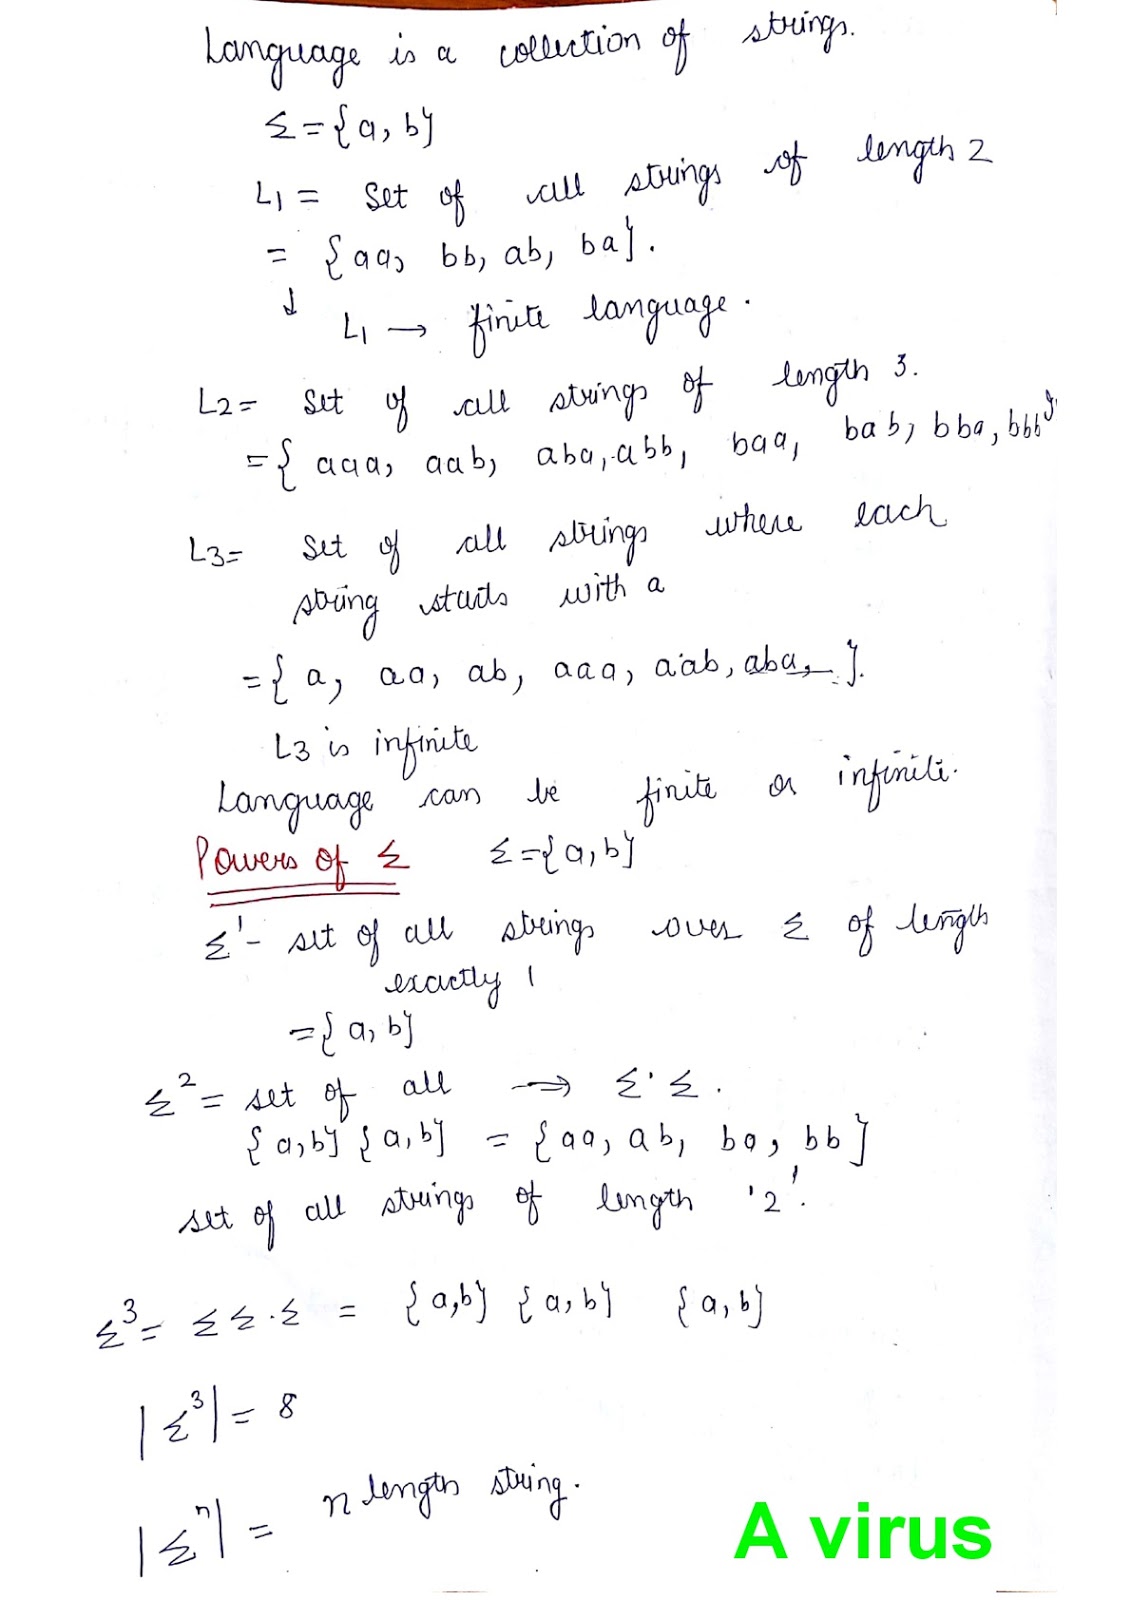 Language is a collection of strings.
Σ = {a, b}
L1 = Set of all strings of length 2
= {aa, bb, ab, ba}.
↓
L1 → finite language.
L2 = Set of all strings of length 3.
= { aaa, aab, aba, abb, baa, bab, bba, bbb}
L3 = Set of all strings where each
string starts with a
= { a, aa, ab, aaa, aab, aba, — }.
L3 is infinite
Language can be finite or infinite.
Powers of Σ Σ = {a, b}
Σ¹ - set of all strings over Σ of length
exactly 1
= {a, b}
Σ² = set of all → Σ·Σ.
{a,b} {a,b} = {aa, ab, ba, bb}
set of all strings of length '2'.
Σ³ = ΣΣ.Σ = {a,b} {a,b} {a,b}
|Σ³| = 8
|Σⁿ| = n length string.
A virus